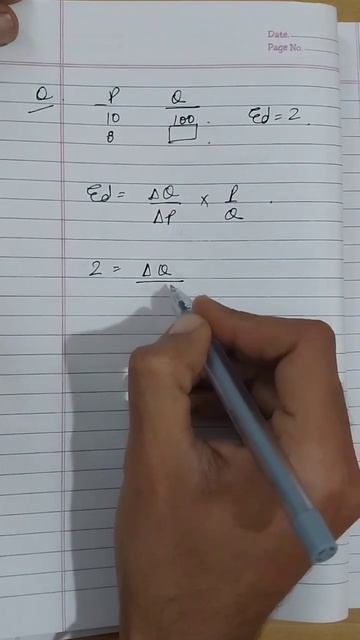 Date.
Page No.
Q. P Q
10 100 . Ed = 2 .
8 .
Ed = ΔQ/ΔP × P/Q .
2 = ΔQ